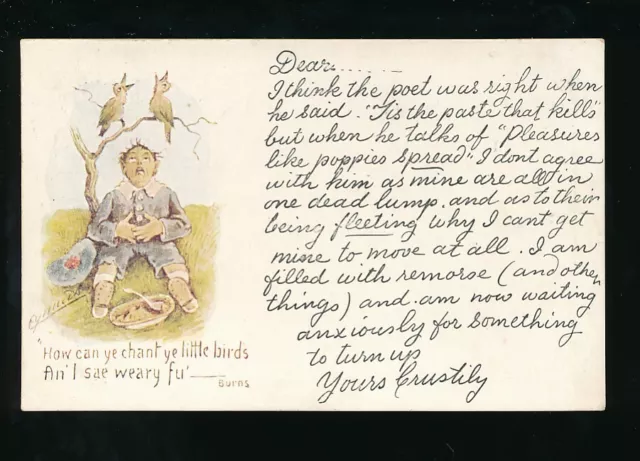 Dear..........
I think the poet was right when
he said. "Tis the paste that kills"
but when he talks of "Pleasures
like poppies spread" I dont agree
with him as mine are all in
one dead lump. and as to their
being fleeting why I cant get
mine to move at all. I am
filled with remorse (and other
things) and am now waiting
anxiously for something
to turn up
Yours Crustily
"How can ye chant ye little birds
An' I sae weary fu'——
Burns